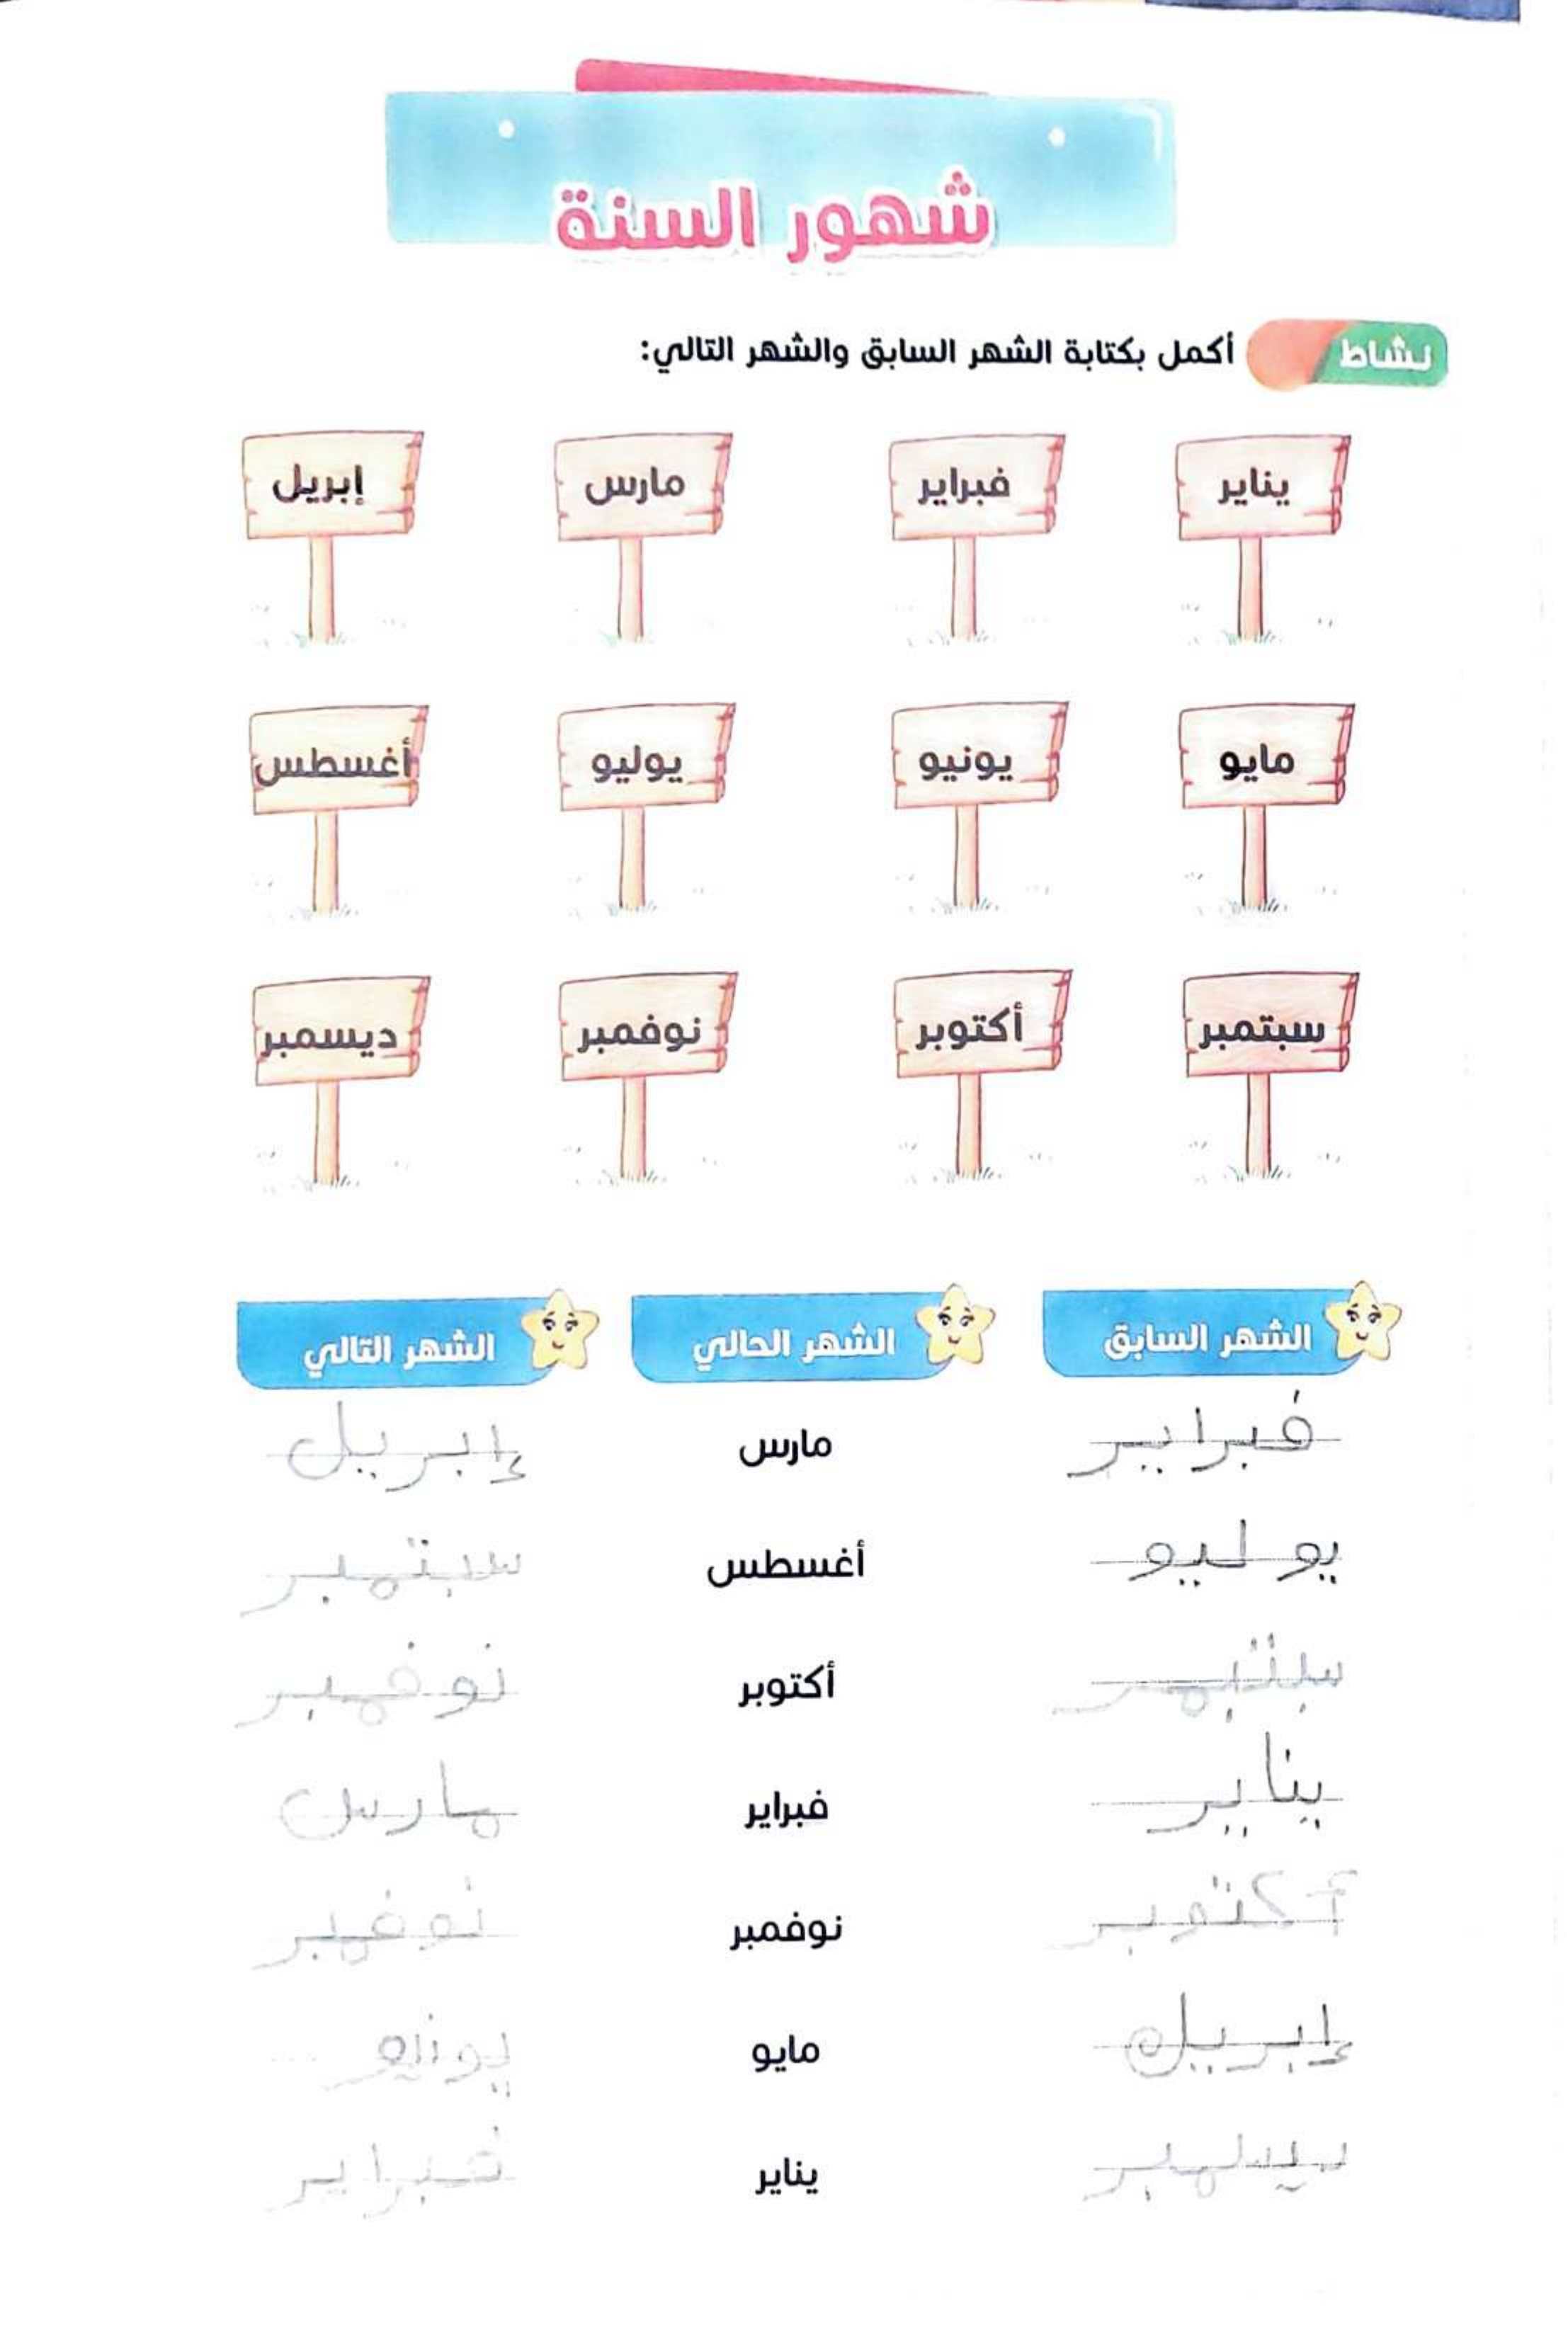 شهور السنة
نشاط أكمل بكتابة الشهر السابق والشهر التالي:
يناير فبراير مارس إبريل
مايو يونيو يوليو أغسطس
سبتمبر أكتوبر نوفمبر ديسمبر
الشهر السابق الشهر الحالي الشهر التالي
فبراير مارس إبريل
يوليو أغسطس سبتمبر
سبتمبر أكتوبر نوفمبر
يناير فبراير مارس
أكتوبر نوفمبر نوفمبر
إبريل مايو يونيو
ديسمبر يناير فبراير